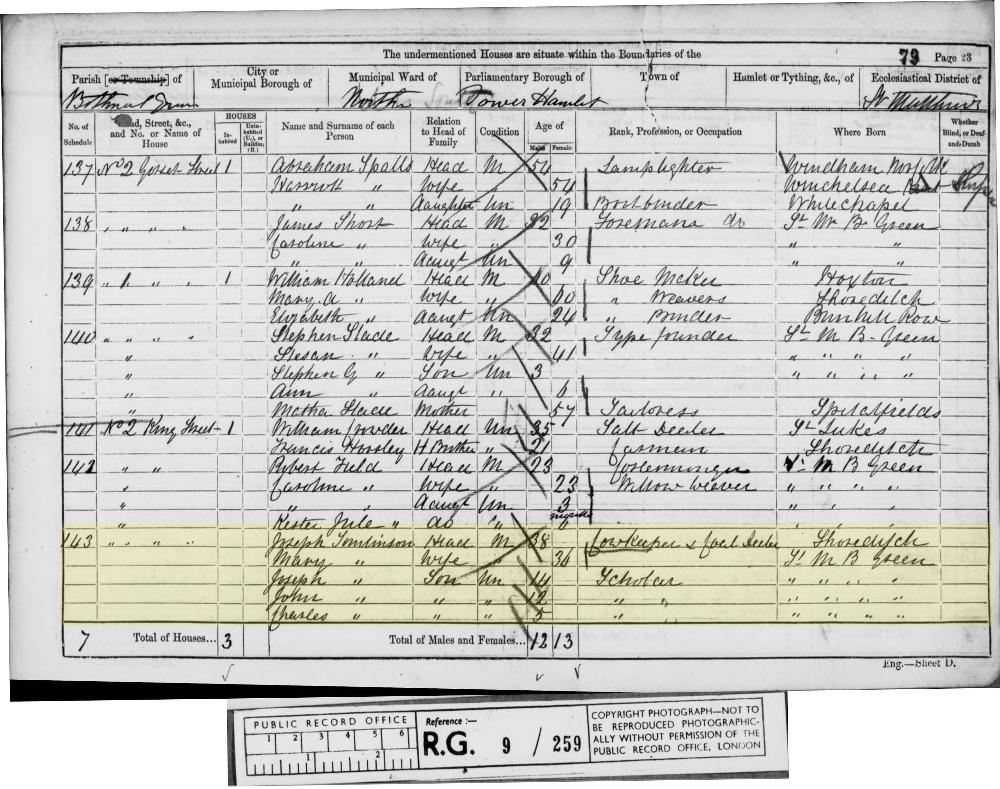 The undermentioned Houses are situate within the Boundaries of the
79 Page 23
Parish [or Township] of
City or Municipal Borough of
Municipal Ward of
Parliamentary Borough of
Town of
Hamlet or Tything, &c., of
Ecclesiastical District of
North Tower Hamlet
No. of Schedule
Road, Street, &c., and No. or Name of House
HOUSES
Inhabited
Uninhabited (U.), or Building (B.)
Name and Surname of each Person
Relation to Head of Family
Condition
Age of
Males Females
Rank, Profession, or Occupation
Where Born
Whether Blind, or Deaf-and-Dumb
137 No 2 Gosset Street 1 Abraham Spalls Head M 54 Lamplighter Windham Norfolk
" Wife 54 Winchelsea Kent
" Daughter Un 19 Whitechapel
138 " " " " James Short Head M 32 St M B Green
Caroline " Wife " 30 " "
" " Daugt Un 9 " "
139 " 1 " " 1 William Holland Head M Shoe Maker Hoxton
Mary A " Wife " " Weavers Shoreditch
Elizabeth " Daugt Un 24 " Binder Bunhill Row
140 " " " " Stephen Slade Head M 32 Type founder St M B Green
" " Wife " 41 " " " "
" Stephen G " Son Un 3 " " " "
" Ann " Daugt " 6
" Slade Mother 57 Tailoress Spitalfields
141 No 2 King Street 1 William Head Un 35 Salt Dealer St Lukes
Francis Horsley H Brother " 21 Carman Shoreditch
142 " " Robert Field Head M 23 M B Green
" Caroline " Wife " 23 Willow Weaver " " " "
" " " Daugt Un 3 " "
" " do "
143 " " " " Joseph Tomlinson Head M 38 Cowkeeper & Coal Dealer Shoreditch
Mary " Wife " 36 St M B Green
Joseph " Son Un 14 Scholar " " " "
John " " " 12 " " " " " "
Charles " " " 5 " " " " " "
7 Total of Houses... 3 Total of Males and Females... 12 13
Eng.—Sheet D.
PUBLIC RECORD OFFICE
1 2 3 4 5 6
1 2
Reference :—
R.G. 9 / 259
COPYRIGHT PHOTOGRAPH—NOT TO
BE REPRODUCED PHOTOGRAPHIC-
ALLY WITHOUT PERMISSION OF THE
PUBLIC RECORD OFFICE, LONDON